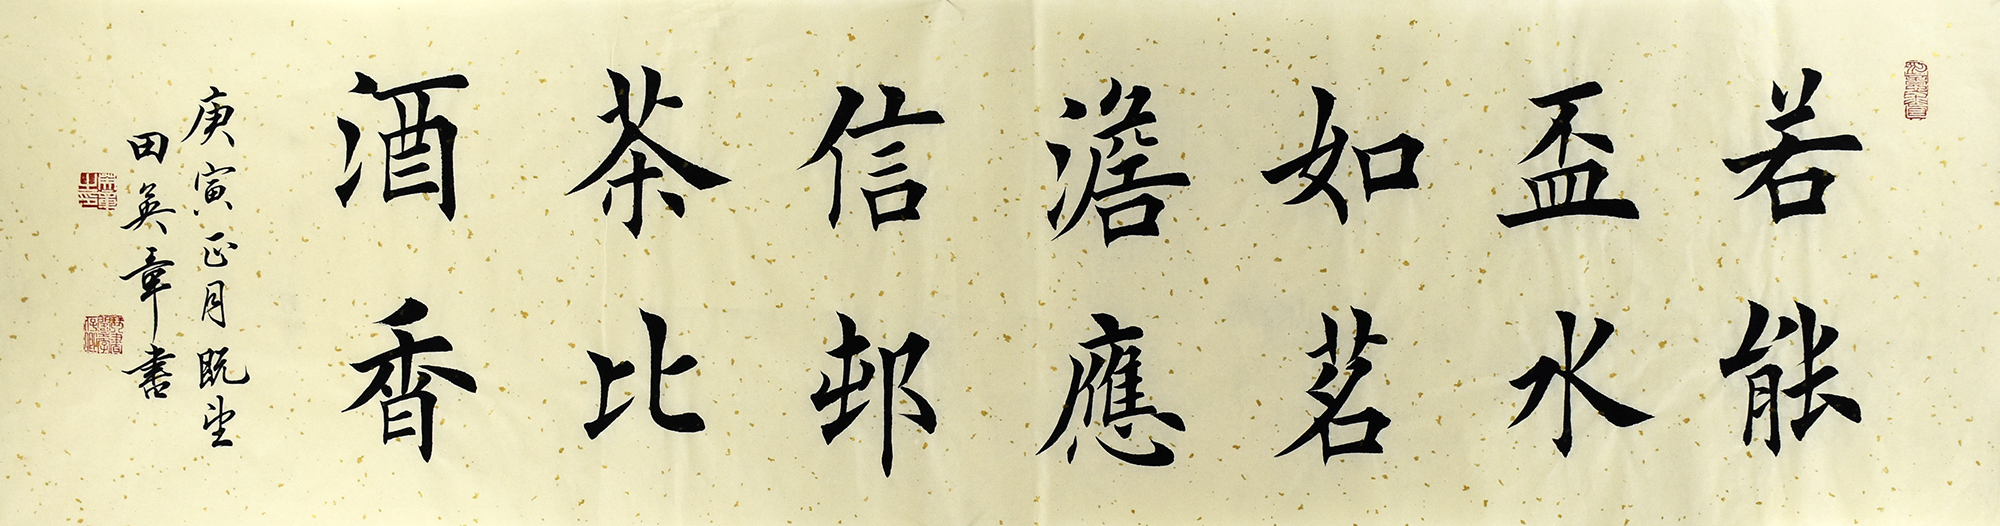 若能
盃水
如茗
澹應
信邨
茶比
酒香
庚寅正月既望
田英章書